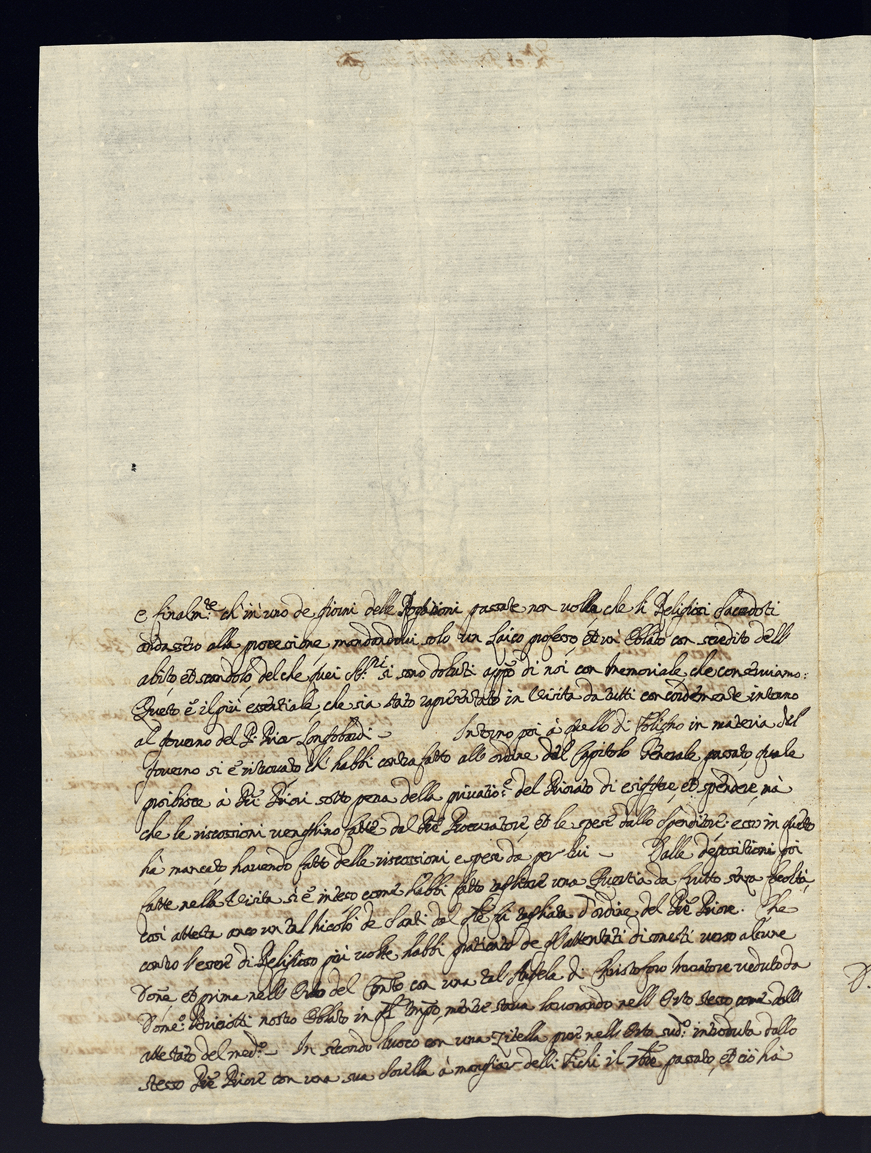 e finalm.te ch'in uno de giorni delle Rogationi passate non volle che li Religiosi Sacerdoti
andassero alla processione mandandovi solo un Laico professo, et un Oblato con scredito dell'
abito et scandolo del che quei si sono doluti app.o di noi con memoriale che conserviamo:
Questo è il più essentiale che sia stato rapresentato in Visita da tutti concordemente intorno
al governo del P. Prior Longobardi – Intorno poi à quello di Foligno in materia del
governo si è ritrovato ch'habbi contrafatto alle ordine del Capitolo Generale passato quale
proibisce à PP.ri Priori sotto pena della privatio.e del Priorato di esiggere, et spendere mà
che le riscossioni venghino fatte dal P.re Procuratore, et le spese dallo Spenditore: esso in questo
hà mancato havendo fatto delle riscossioni e spese da per lui – Dalle depositioni poi
fatte nella Visita si è inteso come habbi fatto tagliare una Quercia da frutto senza facoltà,
così attesta anco un tal Nicolò de Santi dal q.le fù tagliata d'ordine del P.re Priore. Che
contro l'essere di Religioso più volte habbi praticato degl'attentati disonesti verso alcune
Donne, et prima nell'Orto del Con.to con una tal Angela di Christoforo muratore veduto da
Dome.o nostro Oblato in q.l tempo, mentre stava lavorando nell'Orto stesso, come dall'
attestato del med.o – In secondo luoco con una Zitella pure nell'Orto sud.o introdotta dallo
stesso P.re Priore con una sua Sorella à mangiar delli Fichi il 7bre passato, et ciò hà